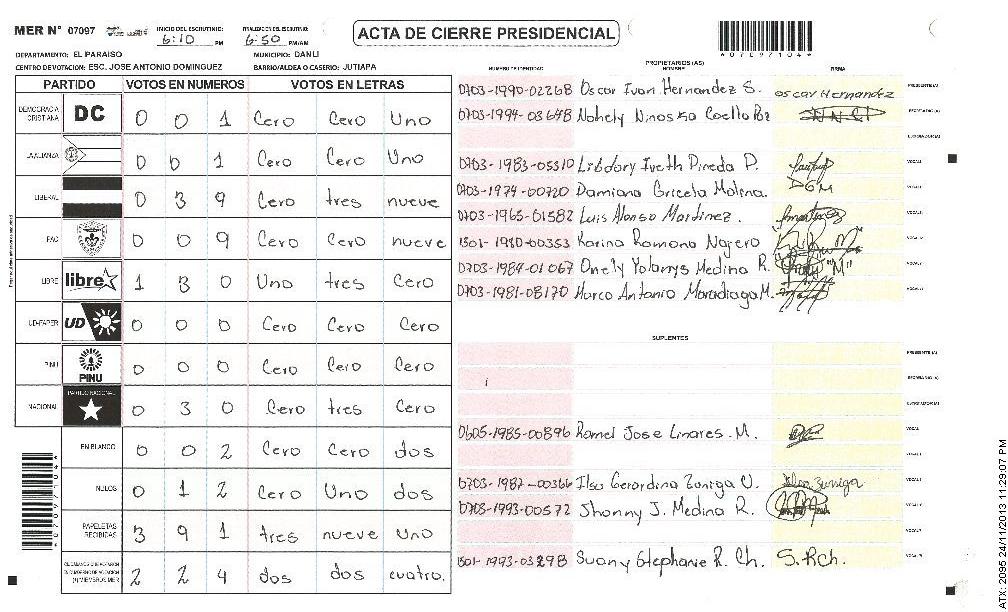 MER N° 07097
INICIO DEL ESCRUTINIO: 6:10 PM
FINALIZACION ESCRUTINIO: 6:50 PM/AM
ACTA DE CIERRE PRESIDENCIAL
*07097104*
DEPARTAMENTO: EL PARAISO
MUNICIPIO: DANLI
CENTRO DE VOTACION: ESC. JOSE ANTONIO DOMINGUEZ
BARRIO/ALDEA O CASERIO: JUTIAPA
PARTIDO VOTOS EN NUMEROS VOTOS EN LETRAS
DEMOCRACIA CRISTIANA DC 0 0 1 Cero Cero Uno
LA ALIANZA 0 0 1 Cero Cero Uno
LIBERAL 0 3 9 Cero tres nueve
PAC 0 0 9 Cero Cero nueve
LIBRE libre 1 3 0 Uno tres Cero
UD-FAPER UD 0 0 0 Cero Cero Cero
PINU PINU 0 0 0 Cero Cero Cero
NACIONAL PARTIDO NACIONAL 0 3 0 Cero tres Cero
EN BLANCO 0 0 2 Cero Cero dos
NULOS 0 1 2 Cero Uno dos
PAPELETAS RECIBIDAS 3 9 1 tres nueve Uno
(+) MIEMBROS MER 2 2 4 dos dos cuatro.
PROPIETARIOS (AS)
NUMERO DE IDENTIDAD NOMBRE FIRMA
0703-1990-02268 Oscar Ivan Hernandez S. oscar Hernandez PRESIDENTE (A)
0703-1994-03648 Nohely Ninoska Coello SECRETARIO (A)
ESCRUTADOR (A)
0703-1983-05310 Libdory Iveth Pineda P. VOCAL I
0703-1974-00720 Damiana Gricela Molina. DGM VOCAL II
0703-1965-01582 Luis Alonso Martinez. VOCAL III
1501-1980-00353 Karina Romana Najero
0703-1984-01067 Onely Yolanys Medina R.
0703-1981-08170 Marco Antonio Moradiaga M.
SUPLENTES
PRESIDENTE (A)
SECRETARIO (A)
ESCRUTADOR (A)
0605-1985-00896 Ramel Jose Linares. M. VOCAL I
0703-1987-00366 Ilsa Gerardina Zuniga U. Ilsa Zuniga
0703-1993-00572 Jhonny J. Medina R.
1501-1993-03298 Suany Stephanie R. Ch. S.RCh.
*07097104*
ATX: 2095 24/11/2013 11:29:07 PM